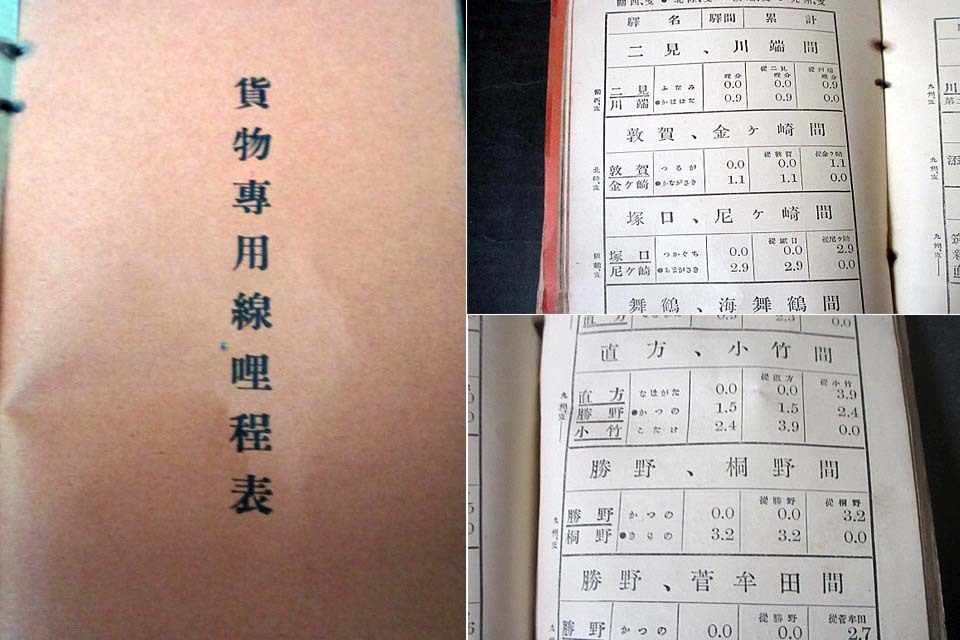 貨物專用線哩程表
驛名 驛間 累計
二見、川端間
從二見 從川端
哩分 哩分 哩分
二見 ふたみ 0.0 0.0 0.9
川端 ●かははた 0.9 0.9 0.0
敦賀、金ヶ崎間
從敦賀 從金ケ崎
敦賀 つるが 0.0 0.0 1.1
金ケ崎 ●かながさき 1.1 1.1 0.0
北陸、支
塚口、尼ヶ崎間
從塚口 從尼ケ崎
塚口 つかぐち 0.0 0.0 2.9
尼ケ崎 ●あまがさき 2.9 2.9 0.0
阪鶴、支
舞鶴、海舞鶴間
九州、支
九州、支
直方 0.9 2.3 0.0
直方、小竹間
從直方 從小竹
直方 なほがた 0.0 0.0 3.9
勝野 ●かつの 1.5 1.5 2.4
小竹 こたけ 2.4 3.9 0.0
九州、支
勝野、桐野間
從勝野 從桐野
勝野 かつの 0.0 0.0 3.2
桐野 ●きりの 3.2 3.2 0.0
九州、支
勝野、菅牟田間
從勝野 從菅牟田
勝野 かつの 0.0 0.0 2.7